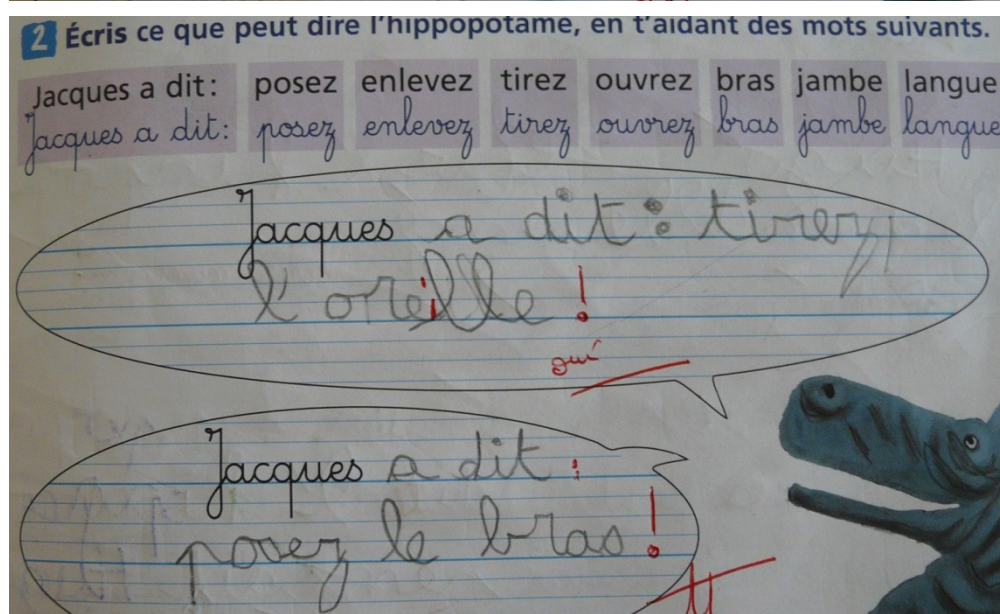 2 Écris ce que peut dire l'hippopotame, en t'aidant des mots suivants.
Jacques a dit : posez enlevez tirez ouvrez bras jambe langue
Jacques a dit : posez enlevez tirez ouvrez bras jambe langue
Jacques a dit : tirez
l'oreille !
oui
Jacques a dit :
posez le bras !